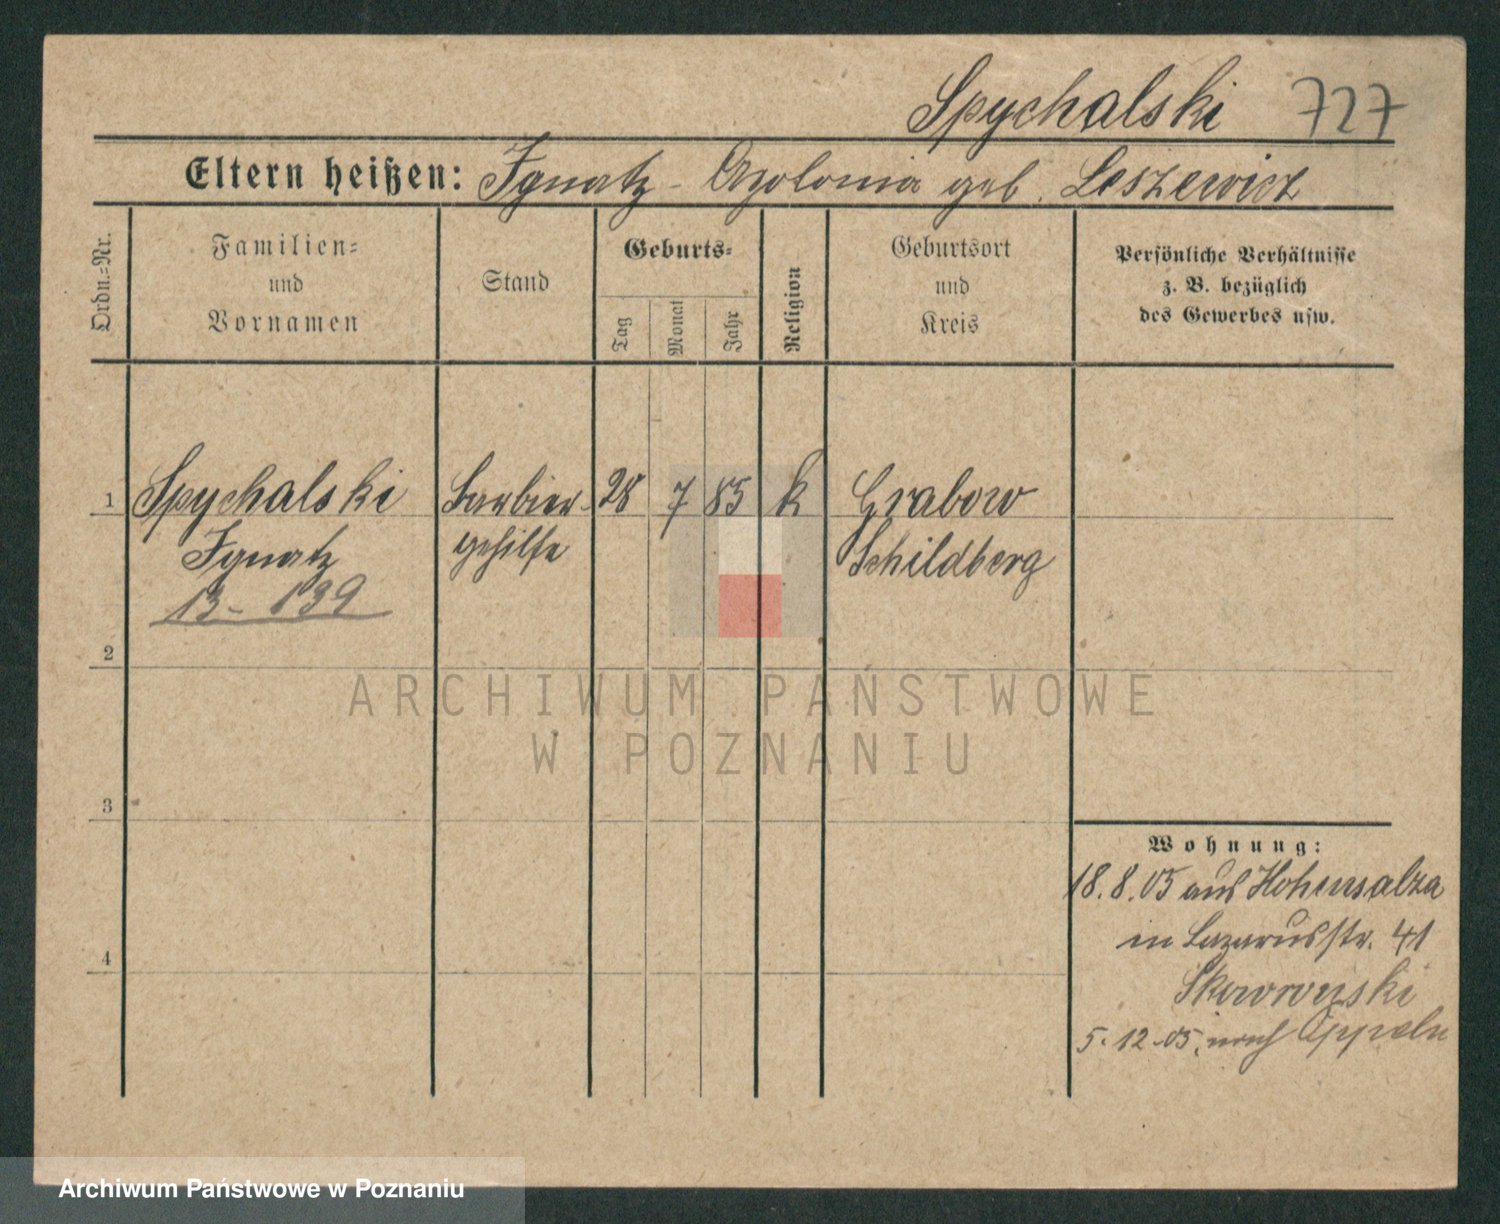 Spychalski 727
Eltern heißen: Ignatz - Apolonia geb. Leszewicz
Ordn.=Nr.
Familien=
und
Vornamen
Stand
Geburts=
Tag
Monat
Jahr
Religion
Geburtsort
und
Kreis
Persönliche Verhältnisse
z. B. bezüglich
des Gewerbes usw.
1 Spychalski Barbier- 28 7 85 k Grabow
Ignatz gehilfe Schildberg
13- 139
2
3
4
Wohnung:
18.8.05 aus Hohensalza
in Lazarusstr. 41
Skowronski
5.12.05. nach Oppeln
ARCHIWUM PAŃSTWOWE
W POZNANIU
Archiwum Państwowe w Poznaniu